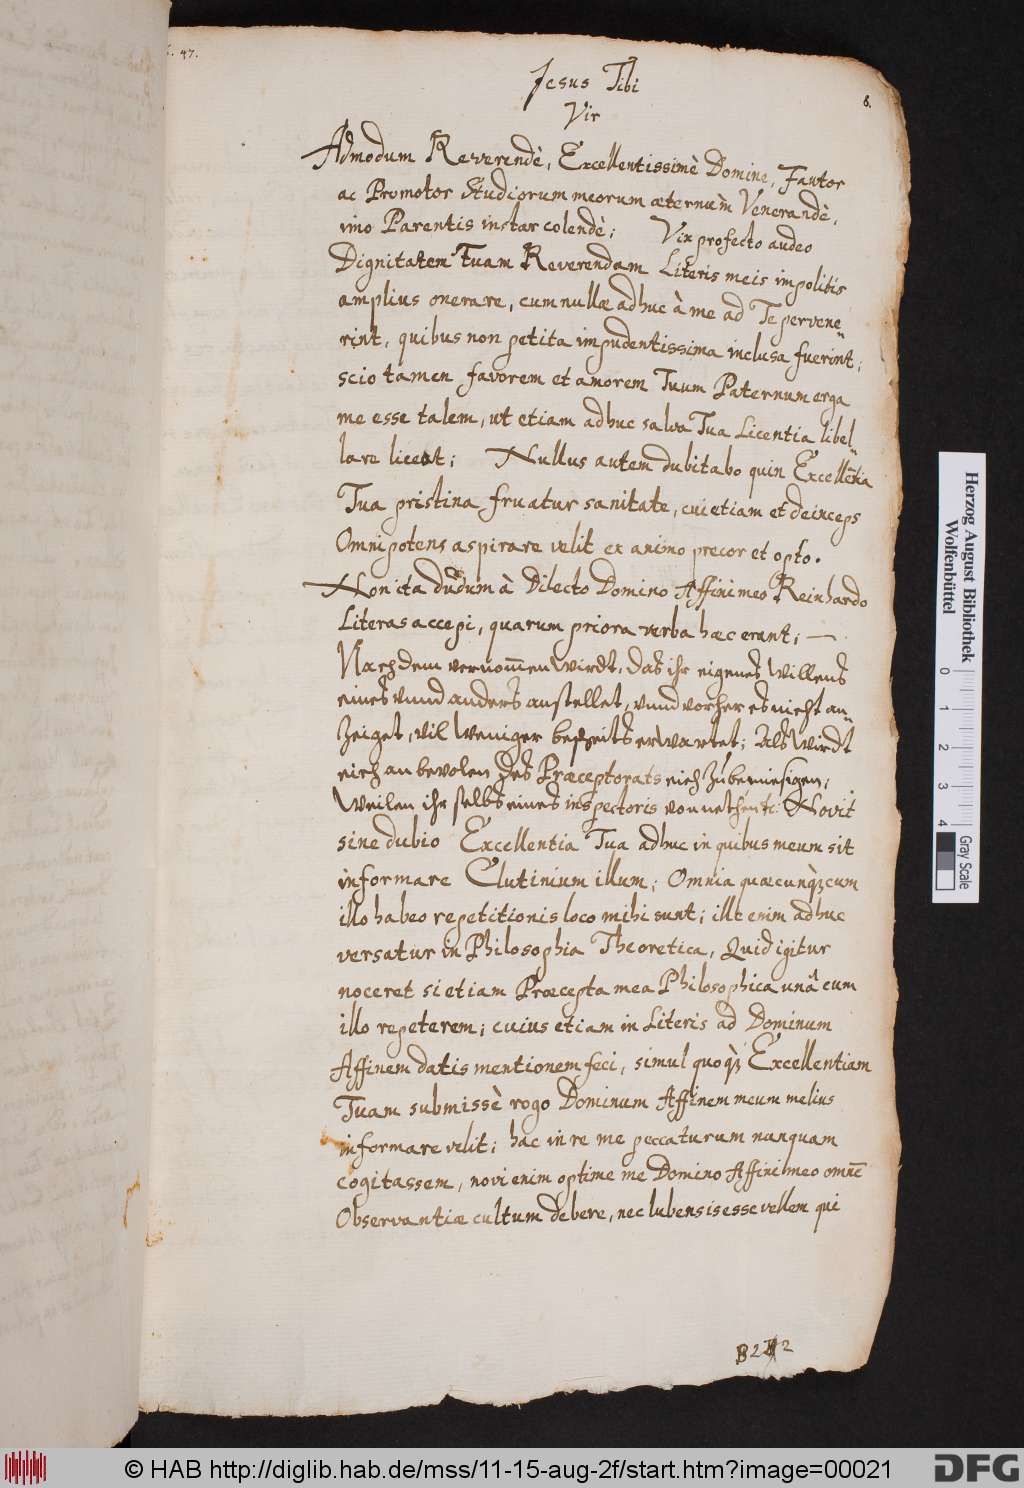 47.
6.
Jesus Tibi
Vir
Admodum Reverendè, Excellentissimè Domine, Fautor
ac Promotor Studiorum meorum æternùm Venerandè,
imo Parentis instar colendè; Vix profecto audeo
Dignitatem Tuam Reverendam Literis meis impolitis
amplius onerare, cum nullæ adhuc à me ad Te pervene„
rint, quibus non petita impudentissima inclusa fuerint;
scio tamen favorem et amorem Tuum Paternum erga
me esse talem, ut etiam adhuc salva Tua Licentia libel„
lare liceat; Nullus autem dubitabo quin Excellẽtia
Tua pristina fruatur sanitate, cui etiam et deinceps
Omnipotens aspirare velit ex animo precor et opto.
Non ita dudum à Dilecto Domino Affini meo Reinhardo
Literas accepi, quarum priora verba hæc erant; —
Nachdem vernom̅en wirdt, das ihr eigenes Willens
eines vnnd anders anstellet, vnnd vorher es nicht an„
Zeiget, vil weniger bescheits erwartet; Als wirdt
eich anbevolen des Præceptorats eich Zu bemiesigen;
Weilen ihr selbs eines inspectoris vonnethen etc: Novit
sine dubio Excellentia Tua adhuc in quibus meum sit
informare Clutinium illum; Omnia quæcunqz cum
illo habeo repetitionis loco mihi sunt; ille enim adhuc
versatur in Philosophia Theoretica, Quid igitur
noceret si etiam Præcepta mea Philosophica unâ cum
illo repeterem; cuius etiam in Literis ad Dominum
Affinem datis mentionem feci, simul quoqz Excellentiam
Tuam submissè rogo Dominum Affinem meum melius
informare velit; hac in re me peccaturum nunquam
cogitassem, novi enim optime me Domino Affini meo omnē
Observantiæ cultum debere, nec lubens is esse vellem qui
B2 2
Herzog August Bibliothek
Wolfenbüttel
0 1 2 3 4
Gray Scale
© HAB http://diglib.hab.de/mss/11-15-aug-2f/start.htm?image=00021
DFG